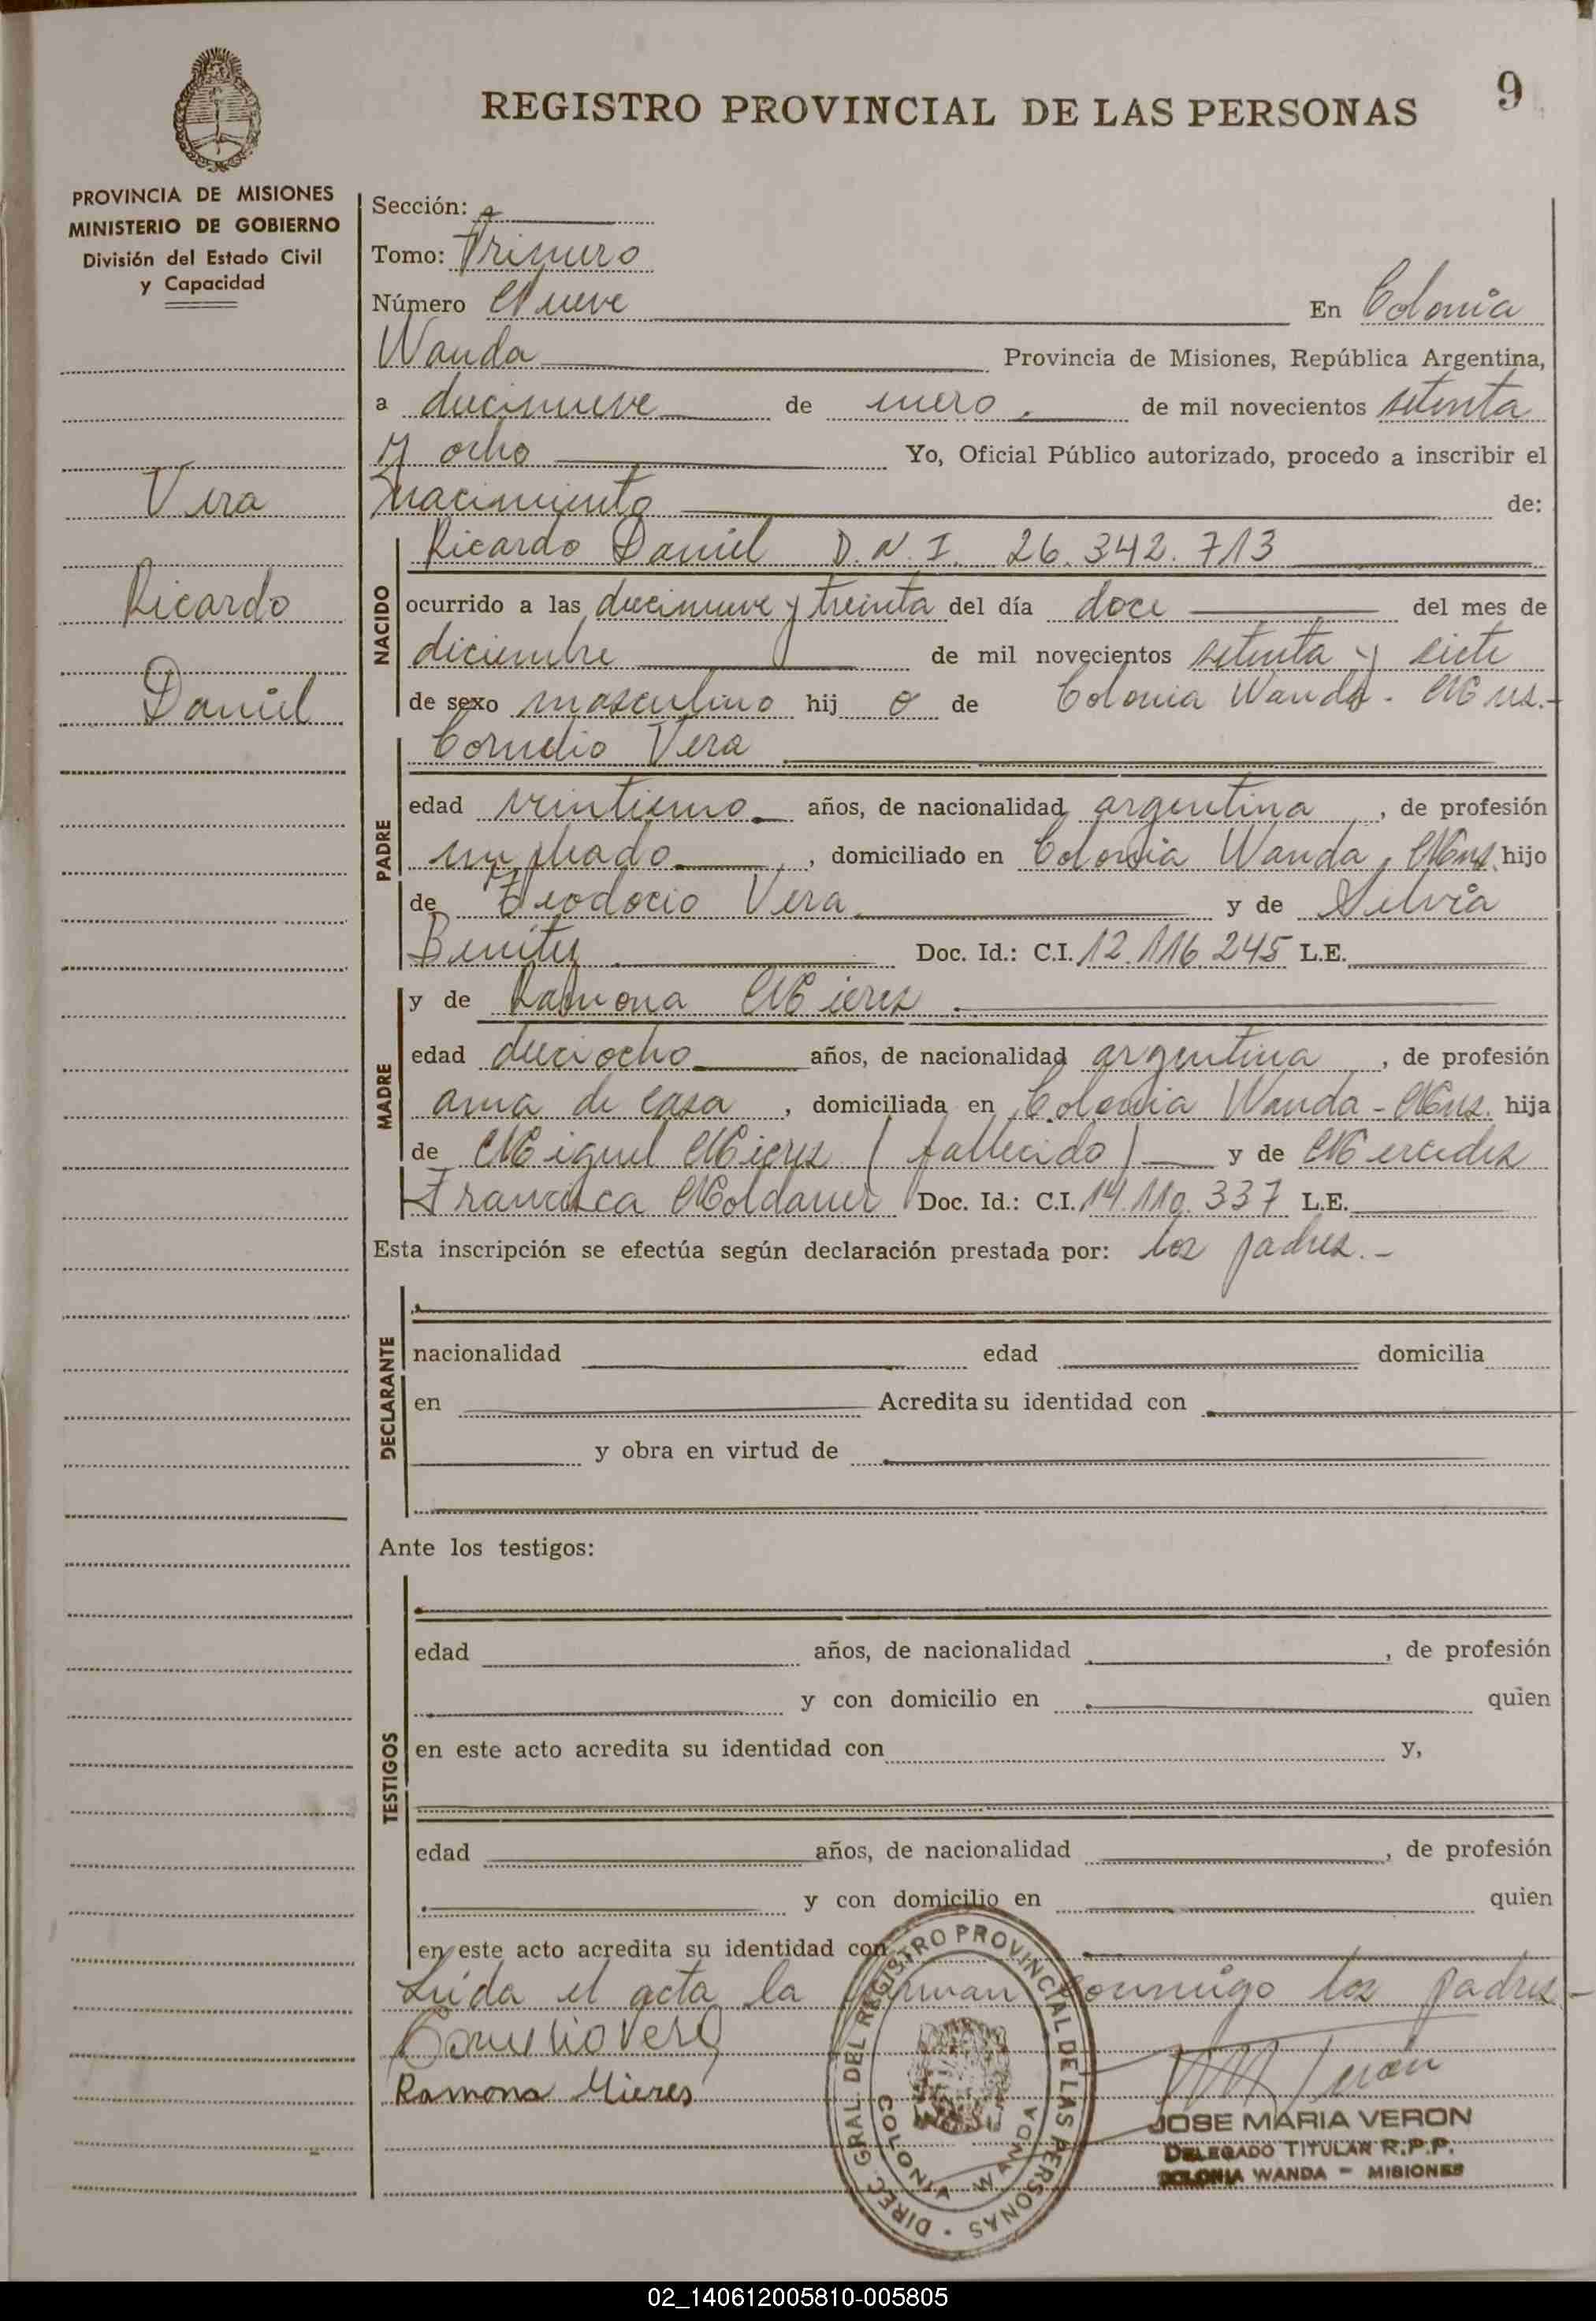 9
REGISTRO PROVINCIAL DE LAS PERSONAS
PROVINCIA DE MISIONES
MINISTERIO DE GOBIERNO
División del Estado Civil
y Capacidad
Vera
Ricardo
Daniel
Sección:
Tomo: Primero
Número Nueve En Colonia
Wanda Provincia de Misiones, República Argentina,
a diecinueve de enero de mil novecientos setenta
y ocho Yo, Oficial Público autorizado, procedo a inscribir el
nacimiento de:
NACIDO
Ricardo Daniel D.N.I. 26.342.713
ocurrido a las diecinueve y treinta del día doce del mes de
diciembre de mil novecientos setenta y siete
de sexo masculino hij o de Colonia Wanda - Mns.-
PADRE
Cornelio Vera
edad veintiuno años, de nacionalidad argentina, de profesión
empleado, domiciliado en Colonia Wanda, Mns. hijo
de Teodocio Vera y de Silvia
Benitez Doc. Id.: C.I. 12.116.245 L.E.
MADRE
y de Ramona Mieres
edad dieciocho años, de nacionalidad argentina, de profesión
ama de casa, domiciliada en Colonia Wanda - Mns. hija
de Miguel Mieres (fallecido) y de Mercedes
Francisca Moldaner Doc. Id.: C.I. 14.110.337 L.E.
Esta inscripción se efectúa según declaración prestada por: los padres.-
DECLARANTE
nacionalidad edad domicilia
en Acredita su identidad con
y obra en virtud de
Ante los testigos:
TESTIGOS
edad años, de nacionalidad , de profesión
y con domicilio en quien
en este acto acredita su identidad con y,
edad años, de nacionalidad , de profesión
y con domicilio en quien
en este acto acredita su identidad con
Leída el acta la firman conmigo los padres-
Cornelio Vera
Ramona Mieres
DIREC. GRAL. DEL REGISTRO PROVINCIAL DE LAS PERSONAS
COLONIA WANDA
JOSE MARIA VERON
DELEGADO TITULAR R.P.P.
COLONIA WANDA - MISIONES
02_140612005810-005805